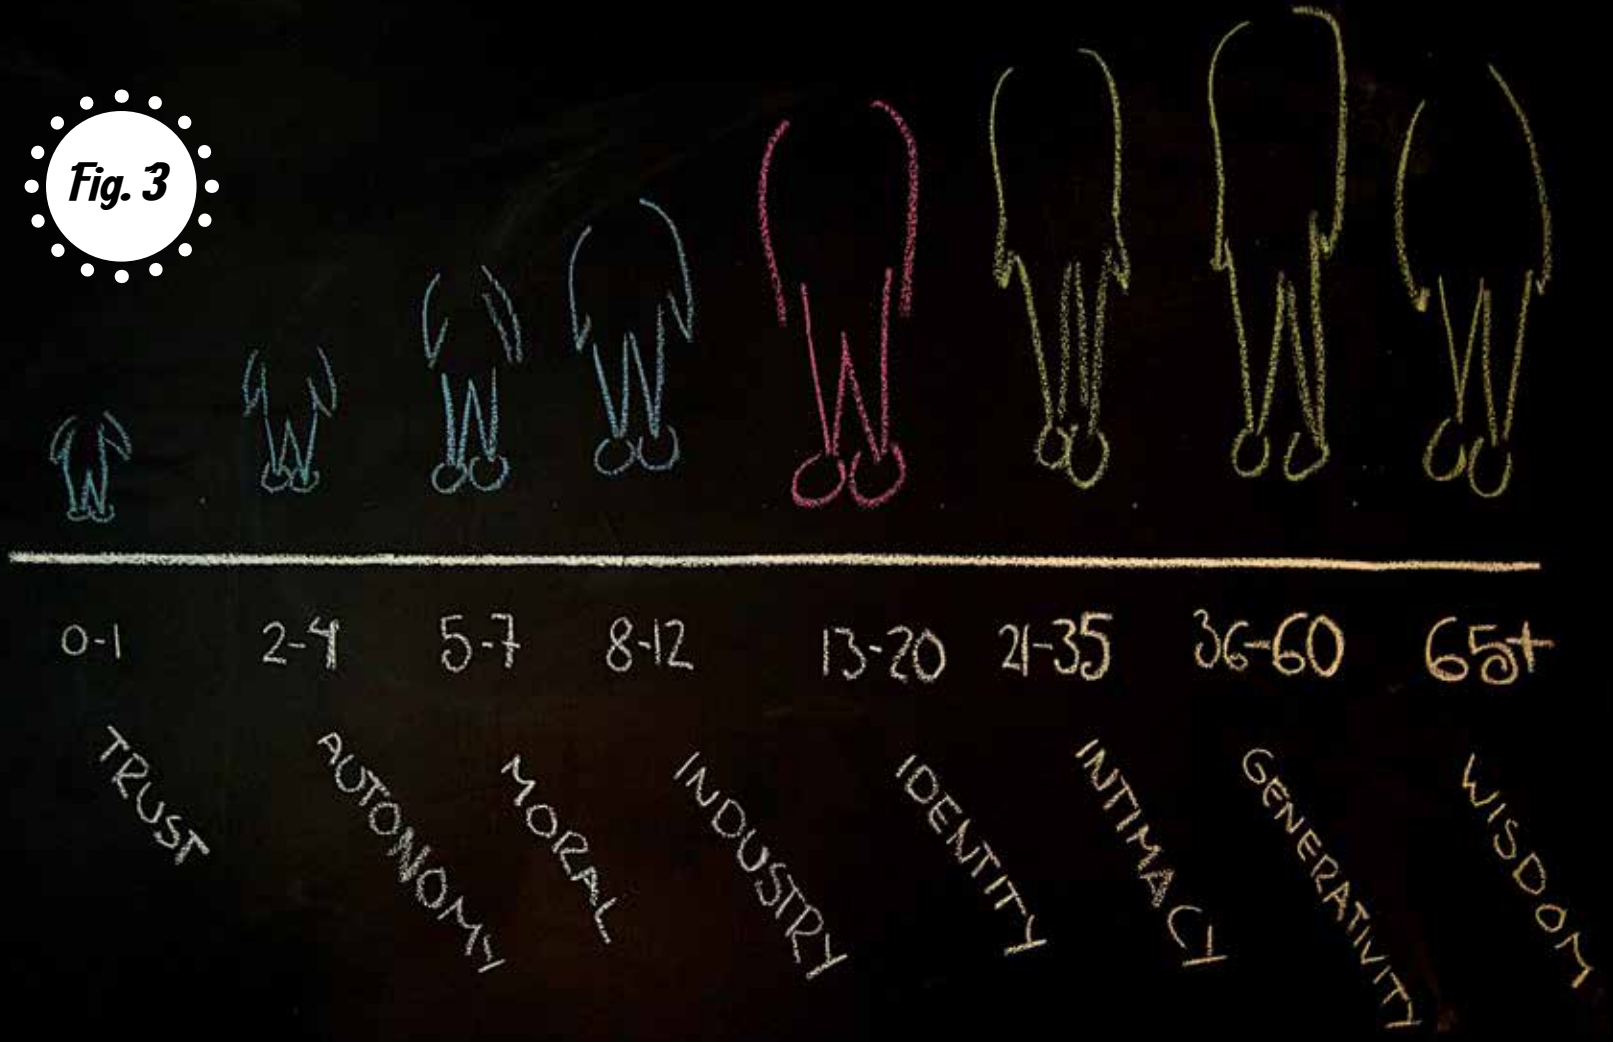 Fig. 3
0-1 2-4 5-7 8-12 13-20 21-35 36-60 65+
TRUST
AUTONOMY
MORAL
INDUSTRY
IDENTITY
INTIMACY
GENERATIVITY
WISDOM